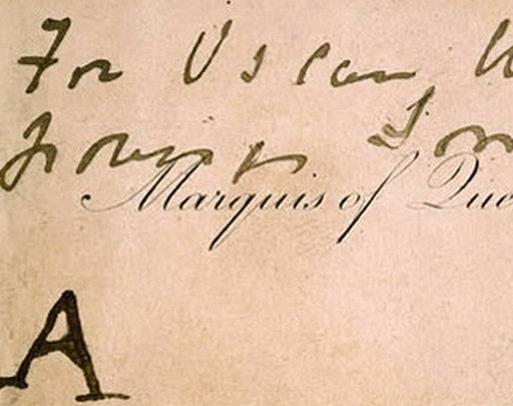 For Oscar W
Som
Marquis of Que
A